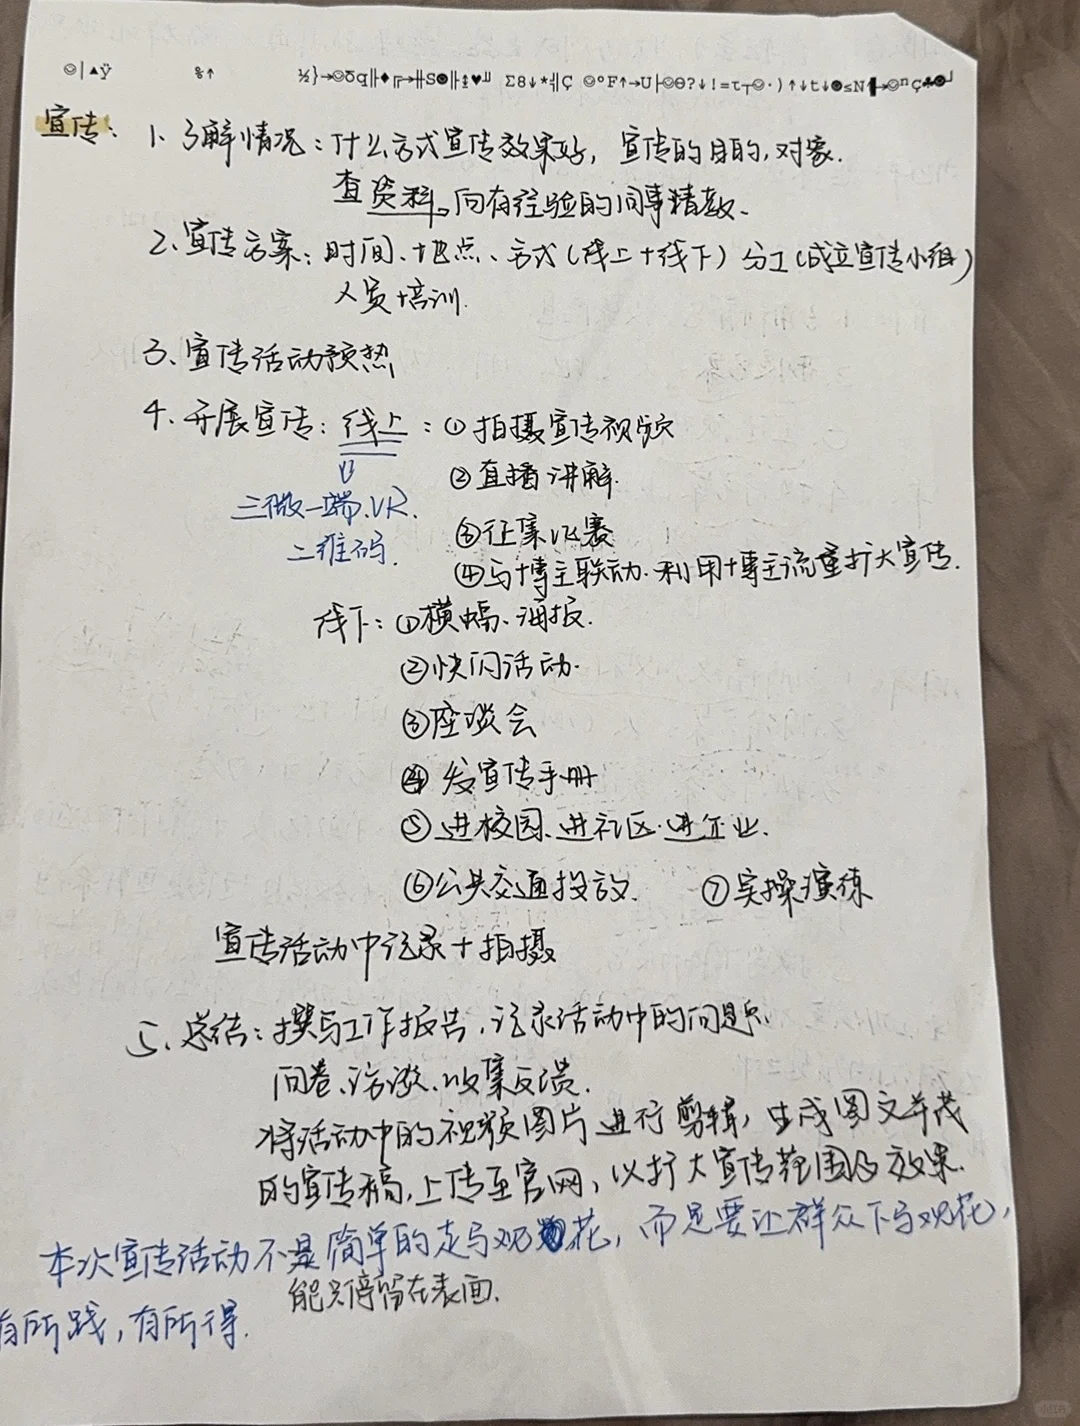 宣传：1、了解情况：什么方式宣传效果好，宣传的目的，对象.
查资料。向有经验的同事请教、
2、宣传方案：时间、地点、方式（线上+线下）分工（成立宣传小组）
人员培训.
3、宣传活动预热
4、开展宣传：线上：①拍摄宣传视频
②直播讲解.
三微一端.VR.
二维码.
③征集比赛
④与博主联动.利用博主流量扩大宣传.
线下：①横幅、海报.
②快闪活动.
③座谈会
④发宣传手册
⑤进校园、进社区.进企业.
⑥公共交通投放. ⑦实操演练
宣传活动中记录+拍摄
5、总结：撰写工作报告，记录活动中的问题.
问卷、访谈、收集反馈.
将活动中的视频图片进行剪辑，生成图文并茂
的宣传稿，上传至官网，以扩大宣传范围及效果.
本次宣传活动不是简单的走马观花，而是要让群众下马观花，
能只停留在表面.
有所践，有所得.